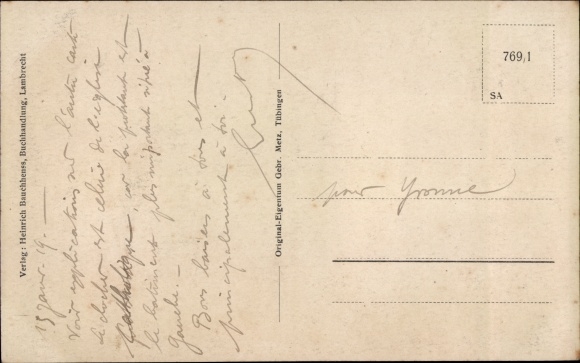 Verlag: Heinrich Bauchhenss, Buchhandlung, Lambrecht
15 janv. 19. —
Voir explications sur l'autre carte
le clocher est celui de l'église
Catholique, car la protestant est
le bâtiment plus important situé à
gauche. —
Bons baisers à tous et
principalement à toi. —
Original-Eigentum Gebr. Metz, Tübingen
769/1
SA
pour Yvonne